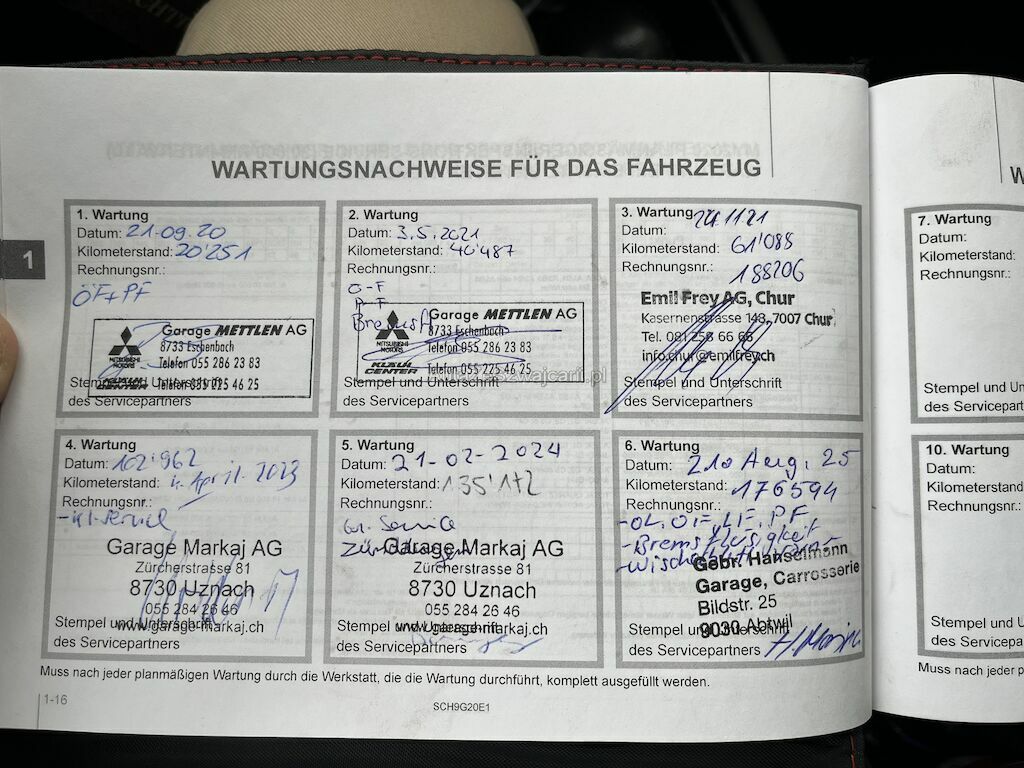 WARTUNGSNACHWEISE FÜR DAS FAHRZEUG
1
1. Wartung
Datum: 21.09.20
Kilometerstand: 20'251
Rechnungsnr.:
ÖF+PF
Garage METTLEN AG
8733 Eschenbach
Telefon 055 286 23 83
MITSUBISHI MOTORS
Telefon 055 225 46 25
Stempel und Unterschrift
des Servicepartners
2. Wartung
Datum: 3.5.2021
Kilometerstand: 40'487
Rechnungsnr.:
Ö-F
P-F
Bremsfl
Garage METTLEN AG
8733 Eschenbach
Telefon 055 286 23 83
MITSUBISHI MOTORS
CENTER Telefon 055 225 46 25
Stempel und Unterschrift
des Servicepartners
3. Wartung
Datum: 24.11.21
Kilometerstand: 61'085
Rechnungsnr.:
188206
Emil Frey AG, Chur
Kasernenstrasse 148, 7007 Chur
Tel. 081 258 66 66
info.chur@emilfrey.ch
Stempel und Unterschrift
des Servicepartners
4. Wartung
Datum: 102'962
Kilometerstand: 4. April. 2023
Rechnungsnr.:
-kl. service
Garage Markaj AG
Zürcherstrasse 81
8730 Uznach
055 284 26 46
www.garage-markaj.ch
Stempel und Unterschrift
des Servicepartners
5. Wartung
Datum: 21-02-2024
Kilometerstand: 135'172
Rechnungsnr.:
Gr. Service
Garage Markaj AG
Zürcherstrasse 81
8730 Uznach
055 284 26 46
www.garage-markaj.ch
Stempel und Unterschrift
des Servicepartners
6. Wartung
Datum: 21. Aug. 25
Kilometerstand: 176594
Rechnungsnr.:
-ÖL, ÖF, LF, PF
-Bremsflüsigkeit
Gebr. Hanselmann
Garage, Carrosserie
Bildstr. 25
9030 Abtwil
Stempel und Unterschrift
des Servicepartners
Muss nach jeder planmäßigen Wartung durch die Werkstatt, die die Wartung durchführt, komplett ausgefüllt werden.
1-16
SCH9G20E1
W
7. Wartung
Datum:
Kilometerstand:
Rechnungsnr.:
Stempel und Un
des Servicepart
10. Wartung
Datum:
Kilometerstand
Rechnungsnr.:
Stempel und U
des Servicepa
Muss nach jeder p